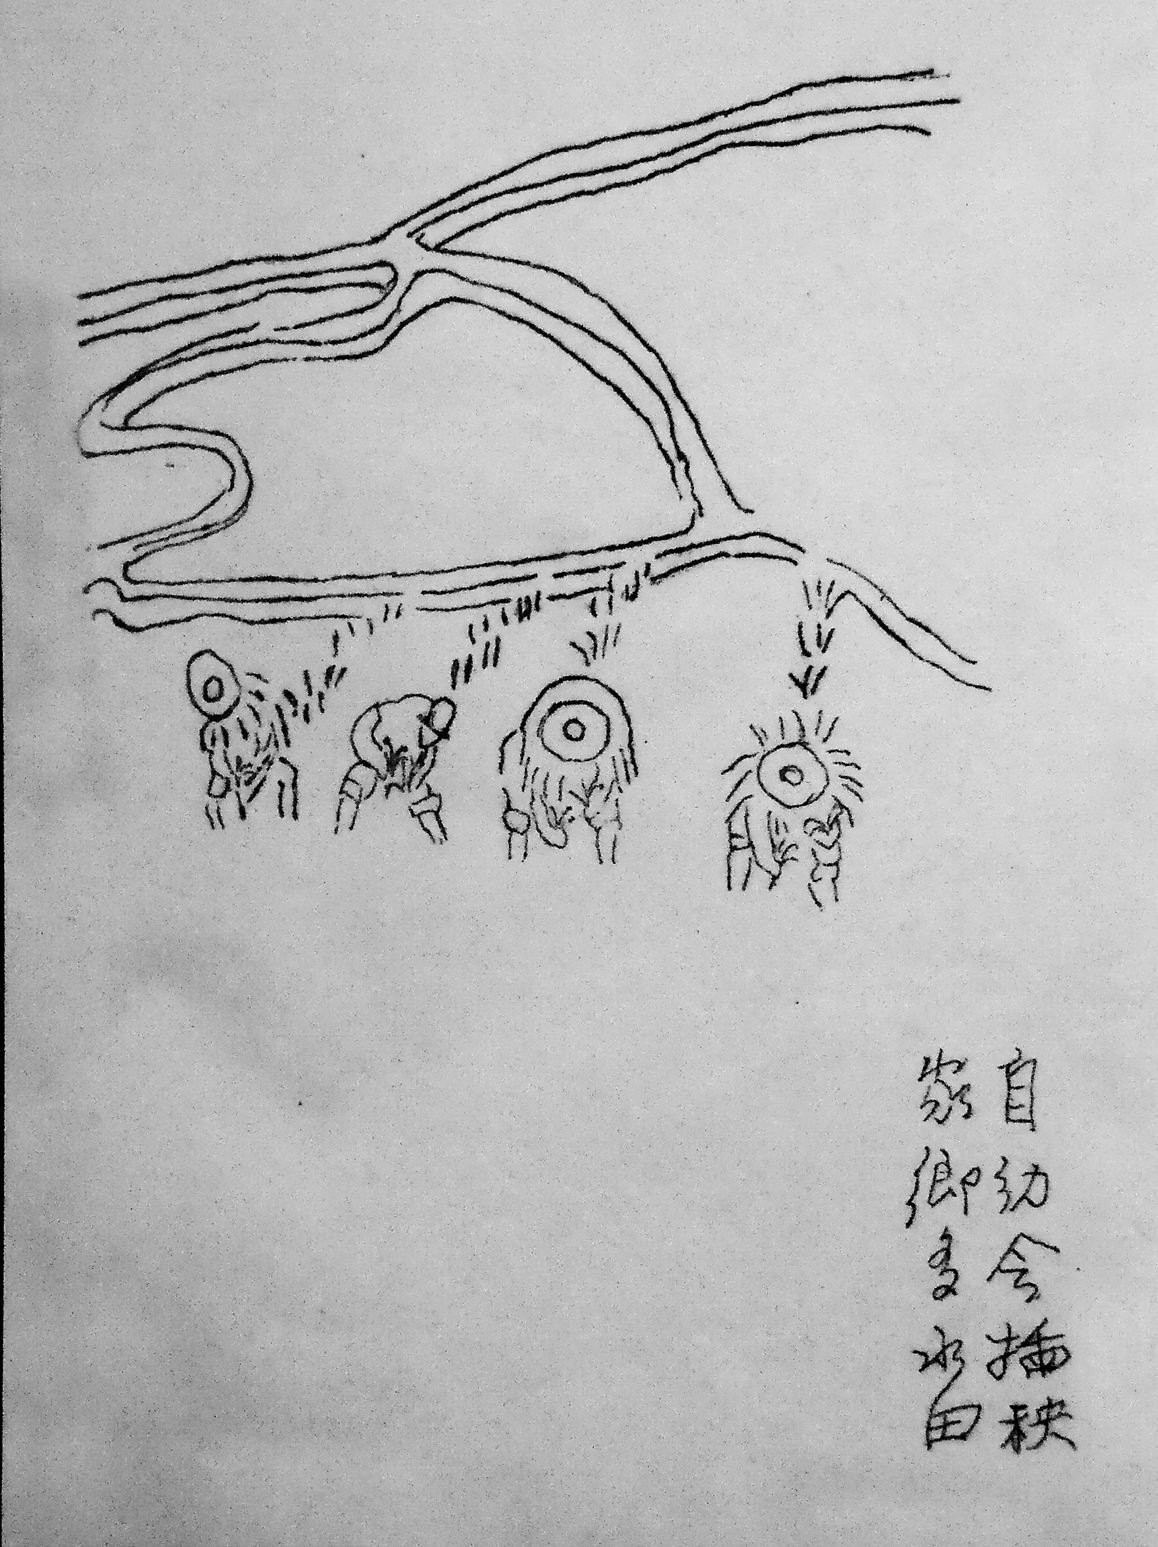 自幼会插秧
家鄉多水田